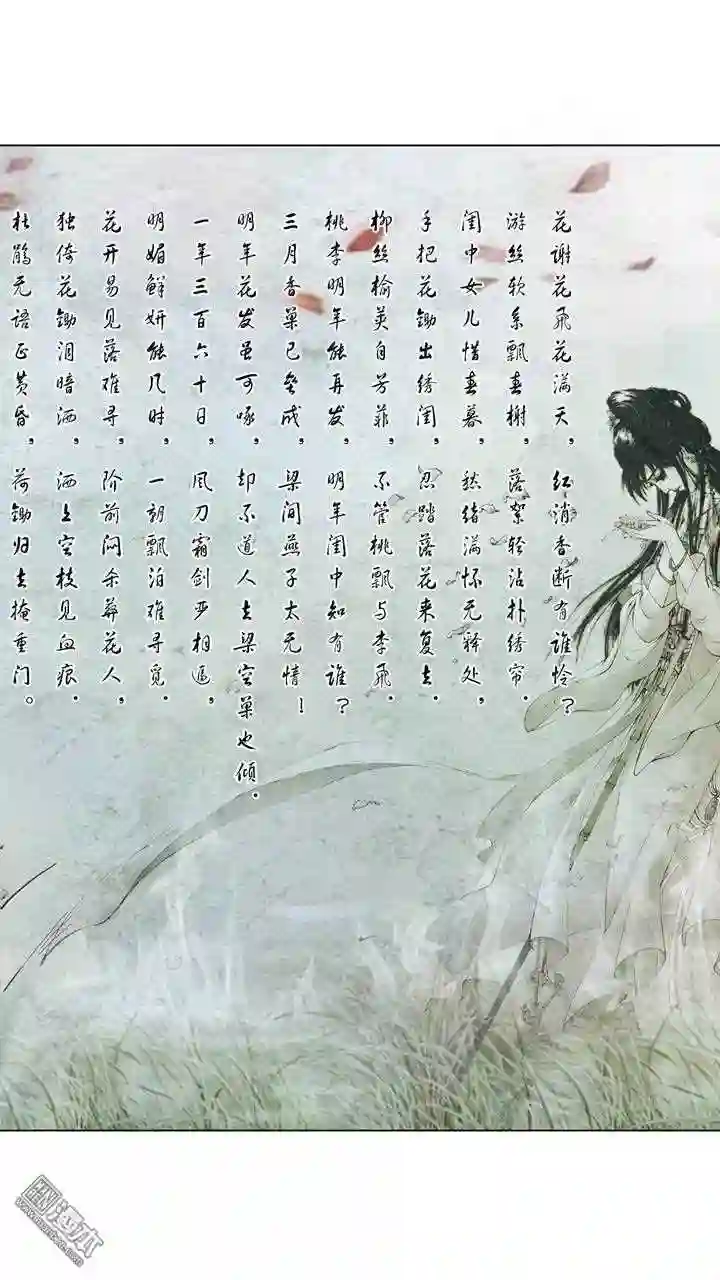 花谢花飞花满天，红消香断有谁怜？
游丝软系飘春榭，落絮轻沾扑绣帘．
闺中女儿惜春暮，愁绪满怀无释处，
手把花锄出绣闺，忍踏落花来复去．
柳丝榆荚自芳菲，不管桃飘与李飞．
桃李明年能再发，明年闺中知有谁？
三月香巢已垒成，梁间燕子太无情！
明年花发虽可啄，却不道人去梁空巢也倾．
一年三百六十日，风刀霜剑严相逼，
明媚鲜妍能几时，一朝飘泊难寻觅．
花开易见落难寻，阶前闷杀葬花人，
独倚花锄泪暗洒，洒上空枝见血痕．
杜鹃无语正黄昏，荷锄归去掩重门。
漫本